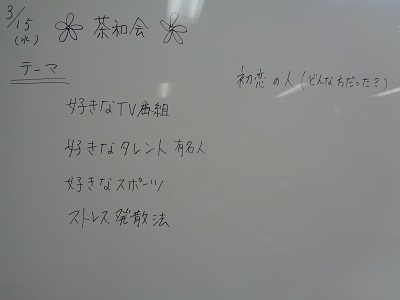 3/15
(水)
茶和会
テーマ
初恋の人(どんな方だった?)
好きなTV番組
好きなタレント・有名人
好きなスポーツ
ストレス発散法